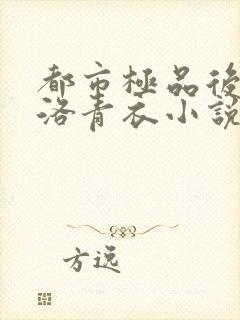 都市極品後
洛青衣小說
方逸